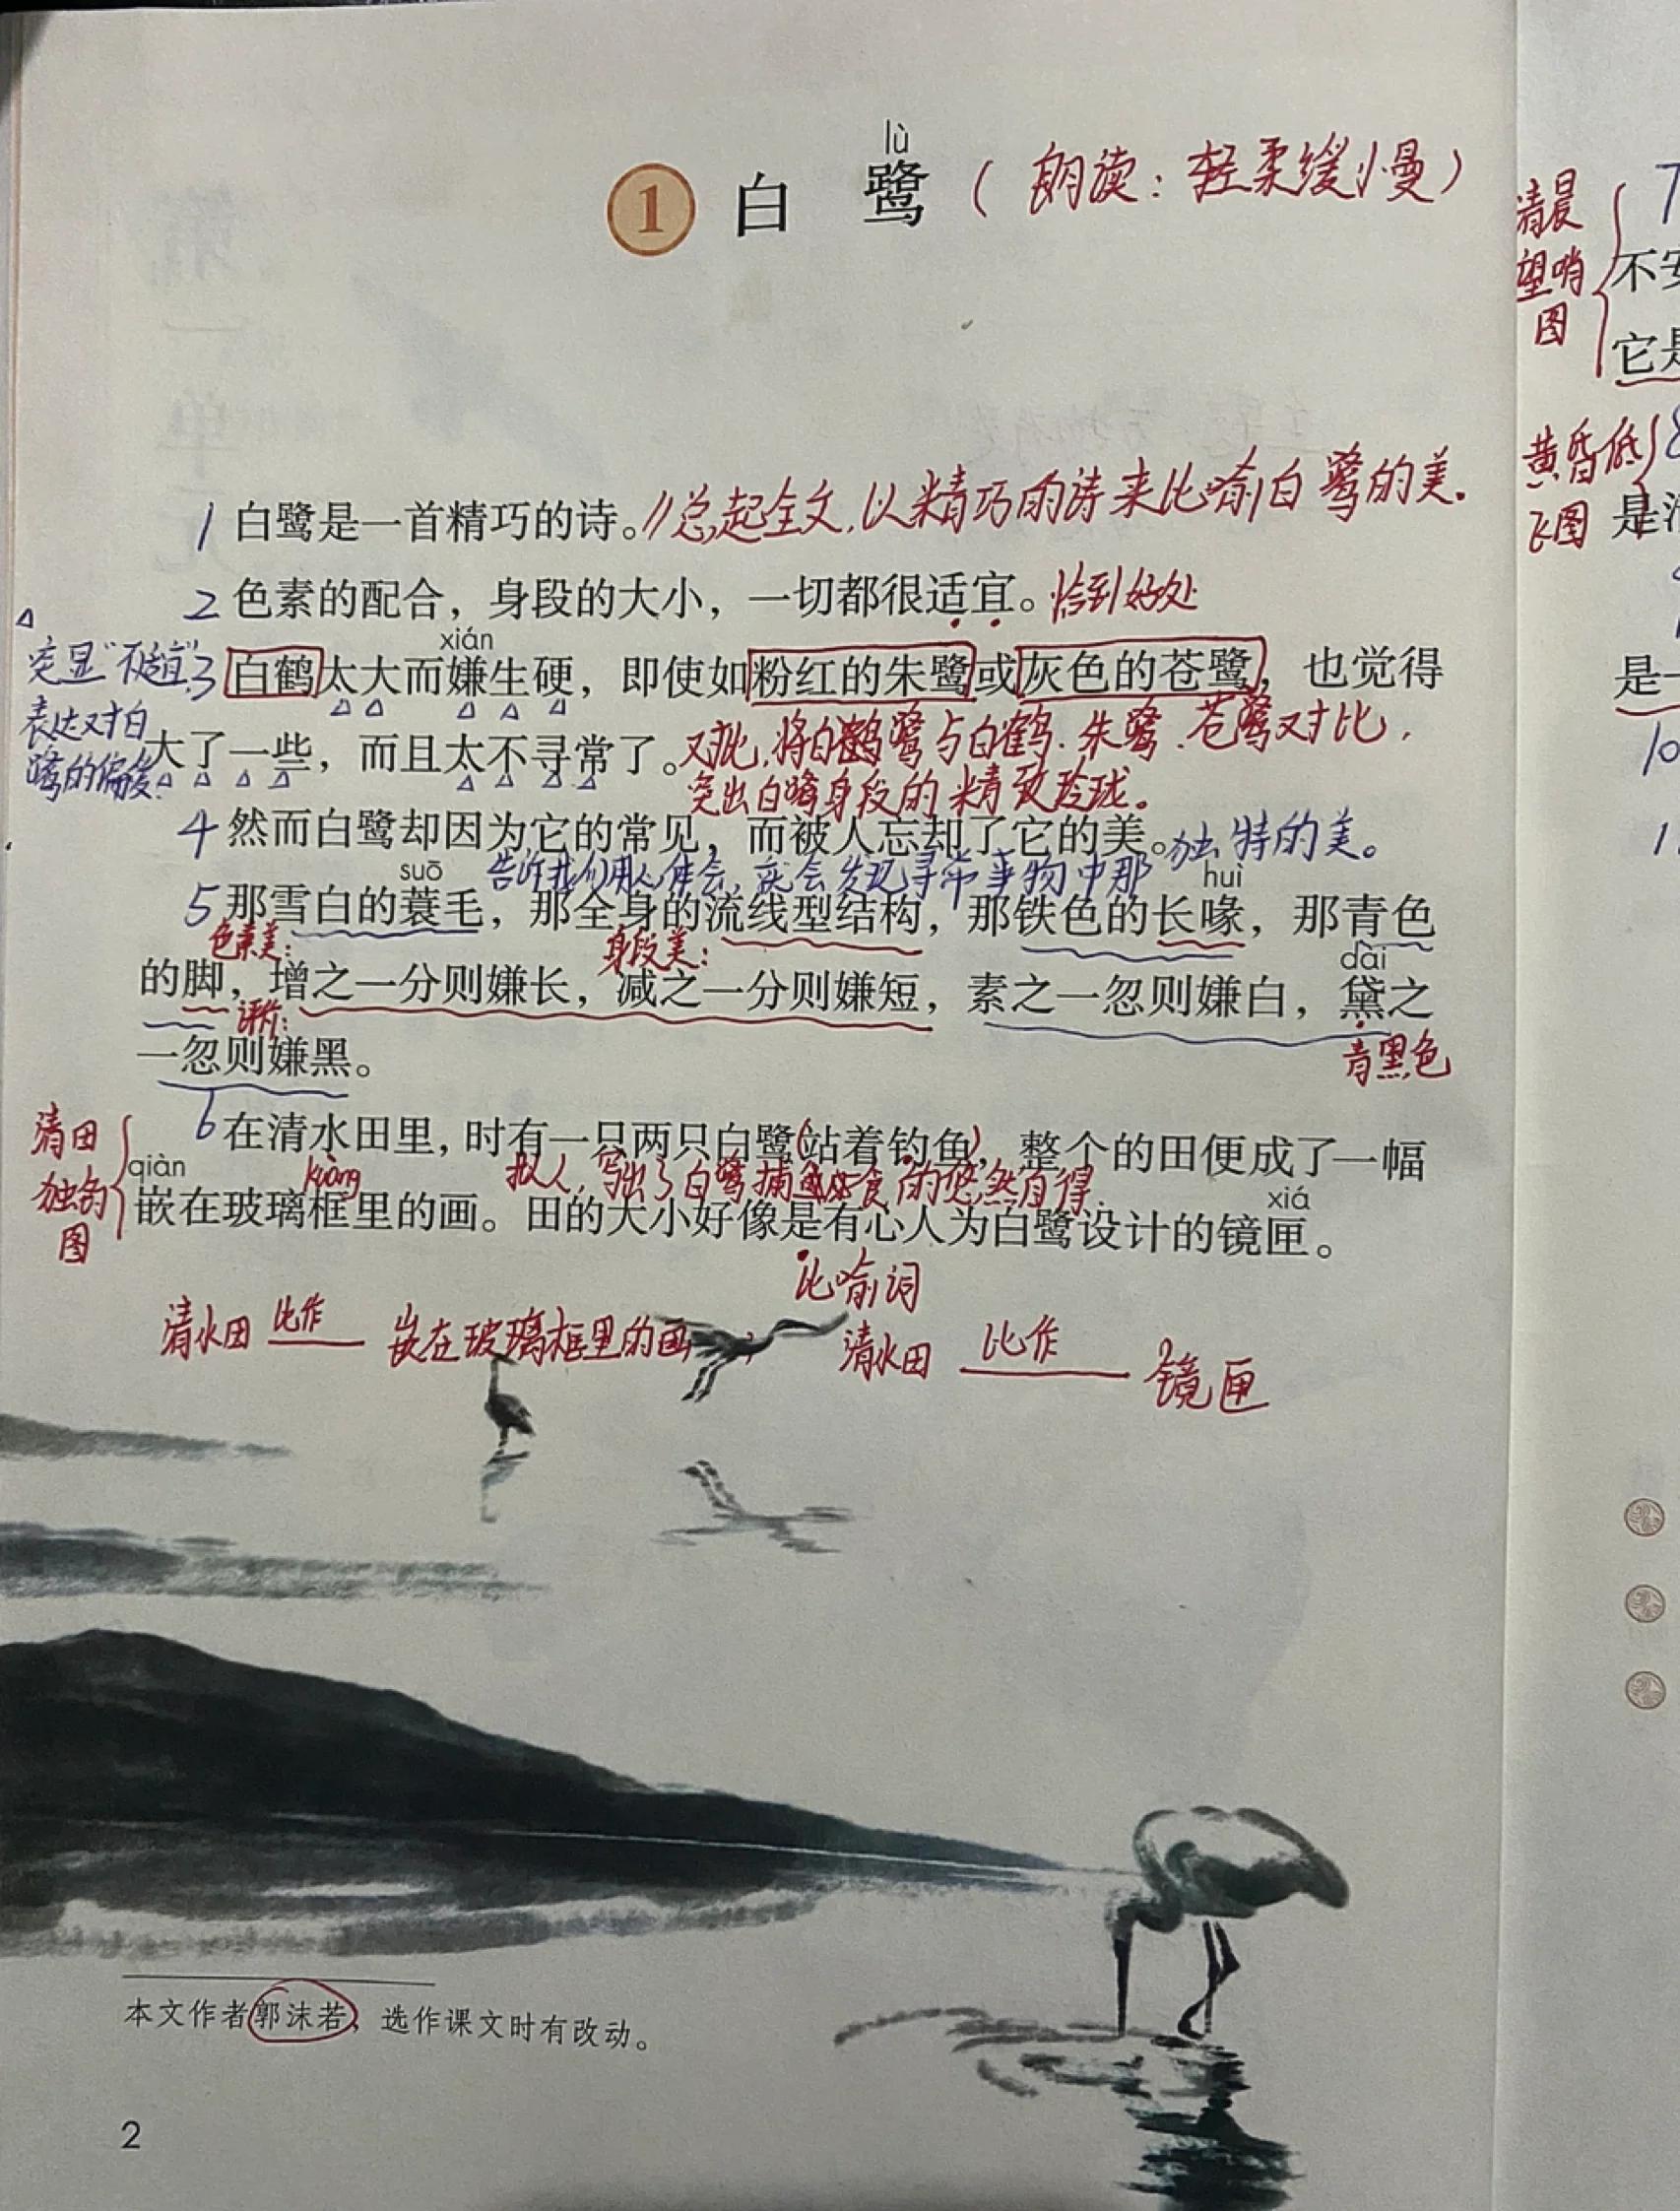 lù
1 白 鹭 （朗读：轻柔缓慢）
1 白鹭是一首精巧的诗。∥总起全文，以精巧的诗来比喻白鹭的美.
2 色素的配合，身段的大小，一切都很适宜。恰到好处
xián
3 白鹤太大而嫌生硬，即使如粉红的朱鹭或灰色的苍鹭，也觉得
突显“不适宜”，
表达对白
鹭的偏爱.
大了一些，而且太不寻常了。对比，将白鹭与白鹤、朱鹭、苍鹭对比，
突出白鹭身段的精致玲珑。
4 然而白鹭却因为它的常见，而被人忘却了它的美。独特的美。
告诉我们用心体会，就会发现寻常事物中那
suō huì
5 那雪白的蓑毛，那全身的流线型结构，那铁色的长喙，那青色
色素美： 身段美：
dài
的脚，增之一分则嫌长，减之一分则嫌短，素之一忽则嫌白，黛之
评价：
青黑色
一忽则嫌黑。
6 在清水田里，时有一只两只白鹭（站着钓鱼），整个的田便成了一幅
清田
独钓
图
拟人，写出了白鹭捕食的悠然自得.
qiàn kuàng xiá
嵌在玻璃框里的画。田的大小好像是有心人为白鹭设计的镜匣。
比喻词
清水田 比作 嵌在玻璃框里的画， 清水田 比作 镜匣
本文作者郭沫若，选作课文时有改动。
2
清晨
望哨
图
7
不安
它是
黄昏低
飞图
8
是清
是一
10